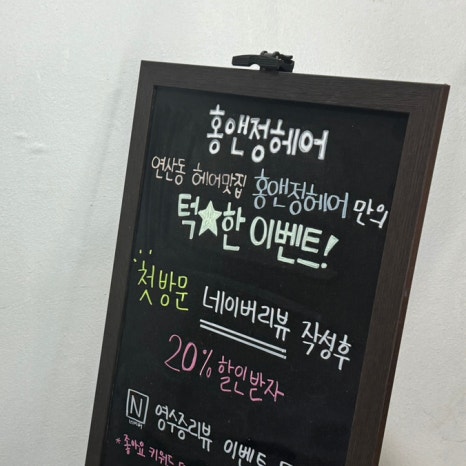 홍앤정헤어
연산동 헤어맛집 홍앤정헤어 만의
턱★한 이벤트!
첫방문 네이버리뷰 작성후
20% 할인받자
N 영수증리뷰 이벤트
*좋아요 키워드